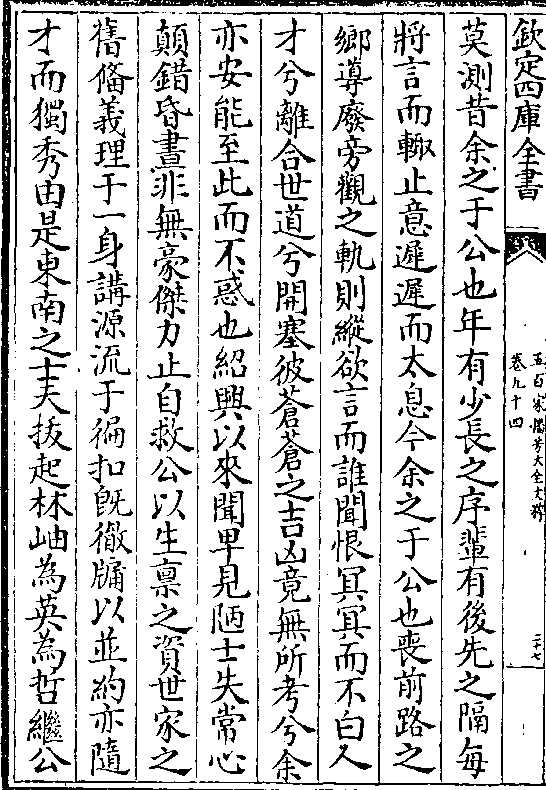 欽定四庫全書
五百家播芳大全文粹
卷九十四
二十七
莫測昔余之于公也年有少長之序輩有後先之隔每
將言而輙止意遲遲而太息今余之于公也喪前路之
鄉導廢旁觀之軌則縱欲言而誰聞恨冥冥而不白人
才兮離合世道兮開塞彼蒼蒼之吉凶竟無所考兮余
亦安能至此而不惑也紹興以來聞卑見陋士失常心
顛錯昏晝非無豪傑力止自救公以生禀之資世家之
舊脩義理于一身講源流于徧扣旣徹牖以並約亦隨
才而獨秀由是東南之士夫拔起林岫為英為哲繼公